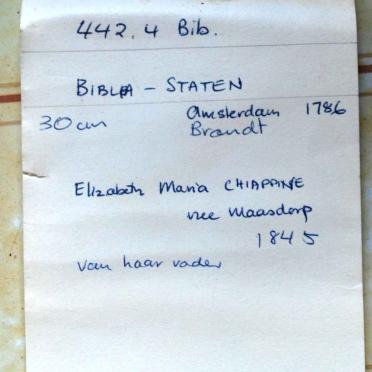 442.4 Bib.
BIBLIA - STATEN
30 cm Amsterdam 1786
Brandt
Elizabeth Maria CHIAPPINE
nee Maasdorp
1845
van haar vader